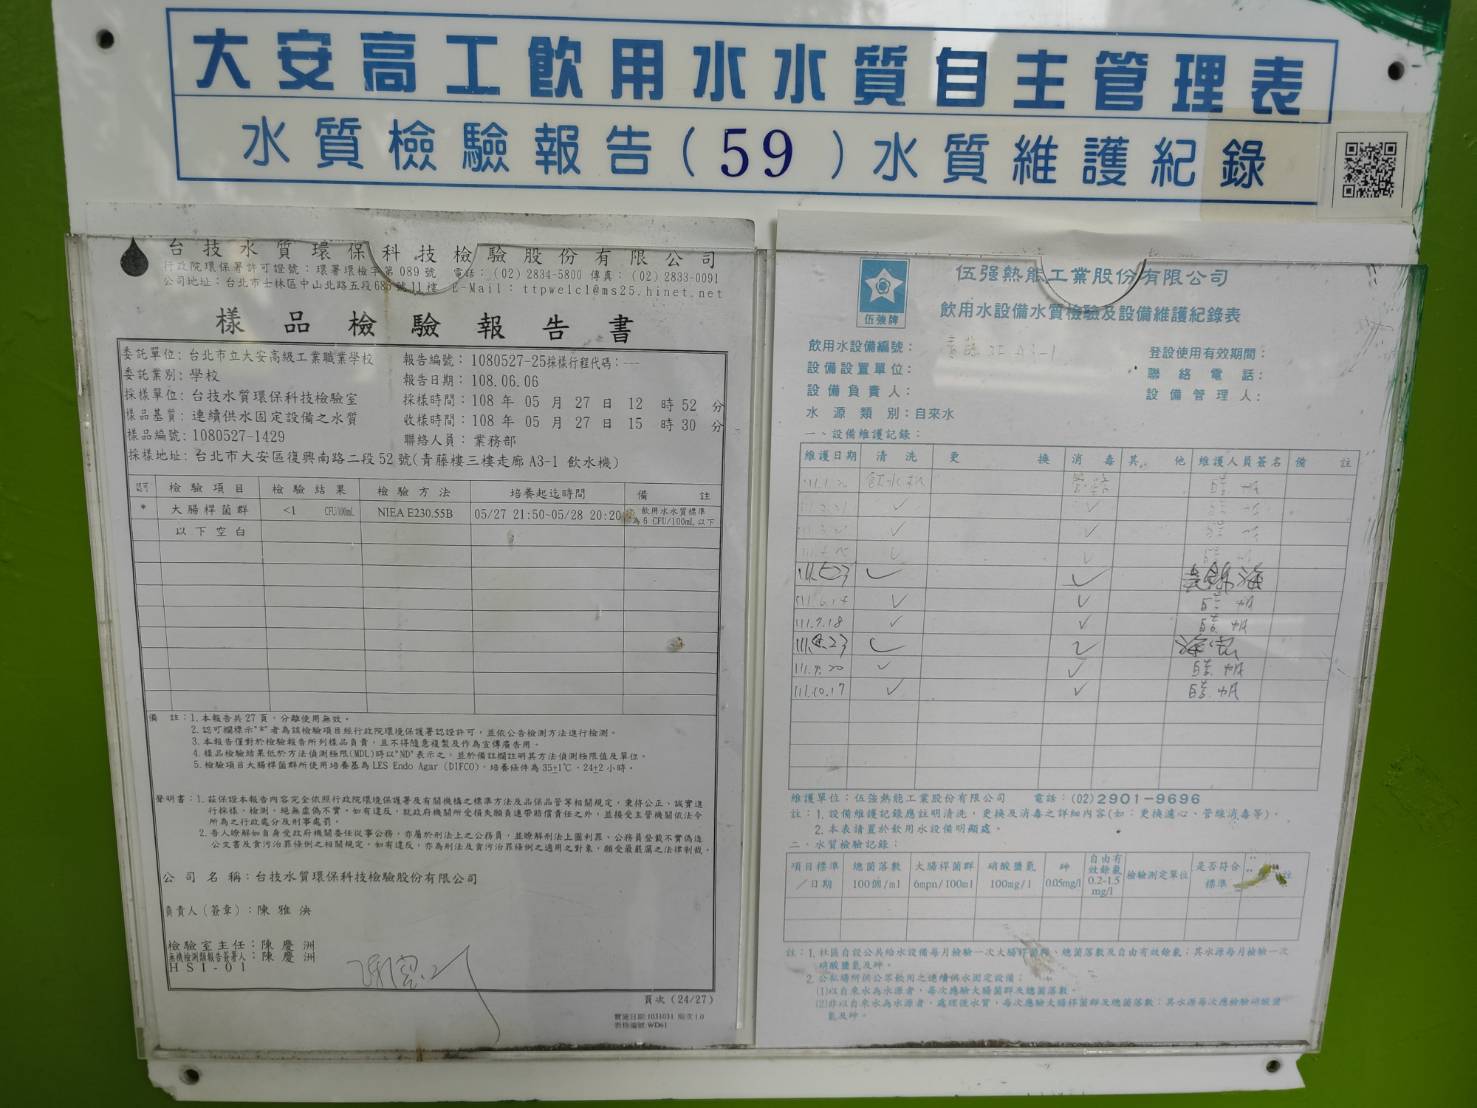 大安高工飲用水水質自主管理表
水質檢驗報告(59)水質維護紀錄
台技水質環保科技檢驗股份有限公司
行政院環保署許可證號：環署環檢字第089號 電話：(02) 2834-5800 傳真：(02) 2833-0091
公司地址：台北市士林區中山北路五段685號11樓 E-Mail：ttpwelcl@ms25.hinet.net
樣品檢驗報告書
委託單位：台北市立大安高級工業職業學校
報告編號：1080527-25採樣行程代碼：---
委託業別：學校
報告日期：108.06.06
採樣單位：台技水質環保科技檢驗室
採樣時間：108 年 05 月 27 日 12 時 52 分
樣品基質：連續供水固定設備之水質
收樣時間：108 年 05 月 27 日 15 時 30 分
樣品編號：1080527-1429
聯絡人員：業務部
採樣地址：台北市大安區復興南路二段52號(青藤樓三樓走廊A3-1 飲水機)
認可 檢驗項目 檢驗結果 檢驗方法 培養起迄時間 備註
* 大腸桿菌群 <1 CFU/100mL NIEA E230.55B 05/27 21:50~05/28 20:20 飲用水水質標準
為6 CFU/100mL以下
以下空白
備 註：1.本報告共27頁，分離使用無效。
2.認可欄標示"*"者為該檢驗項目經行政院環境保護署認證許可，並依公告檢測方法進行檢測。
3.本報告僅對於檢驗報告所列樣品負責，且不得隨意複製及作為宣傳廣告用。
4.樣品檢驗結果低於方法偵測極限(MDL)時以"ND"表示之，並於備註欄註明其方法偵測極限值及單位。
5.檢驗項目大腸桿菌群所使用培養基為LES Endo Agar (DIFCO)，培養條件為35±1℃，24±2小時。
聲明書：1.茲保證本報告內容完全依照行政院環境保護署及有關機構之標準方法及品保品管等相關規定，秉持公正、誠實進
行採樣、檢測。絕無虛偽不實。如有違反，就政府機關所受損失願負連帶賠償責任之外，並接受主管機關依法令
所為之行政處分及刑事處罰。
2.吾人瞭解如自身受政府機關委任從事公務，亦屬於刑法上之公務員，並瞭解刑法上圖利罪、公務員登載不實偽造
公文書及貪污治罪條例之相關規定，如有違反，亦為刑法及貪污治罪條例之適用之對象，願受最嚴厲之法律制裁。
公司名稱：台技水質環保科技檢驗股份有限公司
負責人(簽章)：陳雅泱
檢驗室主任：陳慶洲
無機檢測類報告簽署人：陳慶洲
HSI-01
頁次(24/27)
實施日期:1031031 版次:1.0
表格編號:WD61
伍強牌
伍强熱能工業股份有限公司
飲用水設備水質檢驗及設備維護紀錄表
飲用水設備編號：
登設使用有效期間：
設備設置單位：
聯絡電話：
設備負責人：
設備管理人：
水源類別：自來水
一、設備維護記錄：
維護日期 清洗 更換 消毒 其他 維護人員簽名 備註
飲水機
111.5.23 ✓ ✓
111.6.14 ✓ ✓
111.7.18 ✓ ✓
111.8.23 ✓ ✓
111.9.20 ✓ ✓
111.10.17 ✓ ✓
維護單位：伍強熱能工業股份有限公司 電話：(02)2901-9696
註：1.設備維護記錄應註明清洗，更換及消毒之詳細內容(如：更換濾心、管線消毒等)。
2.本表請置於飲用水設備明顯處。
二、水質檢驗記錄：
項目標準／日期 總菌落數 100個/ml 大腸桿菌群 6mpn/100ml 硝酸鹽氮 100mg/l 砷 0.05mg/l 自由有效餘氯 0.2-1.5 mg/l 檢驗測定單位 是否符合標準 註
註：1.社區自設公共給水設備每月檢驗一次大腸桿菌群、總菌落數及自由有效餘氯；其水源每月檢驗一次
硝酸鹽氮及砷。
2.公私場所供公眾飲用之連續供水固定設備：
(1)以自來水為水源者，每次應驗大腸菌群及總菌落數。
(2)非以自來水為水源者，處理後水質，每次應驗大腸桿菌群及總菌落數；其水源每次應檢驗硝酸鹽
氮及砷。